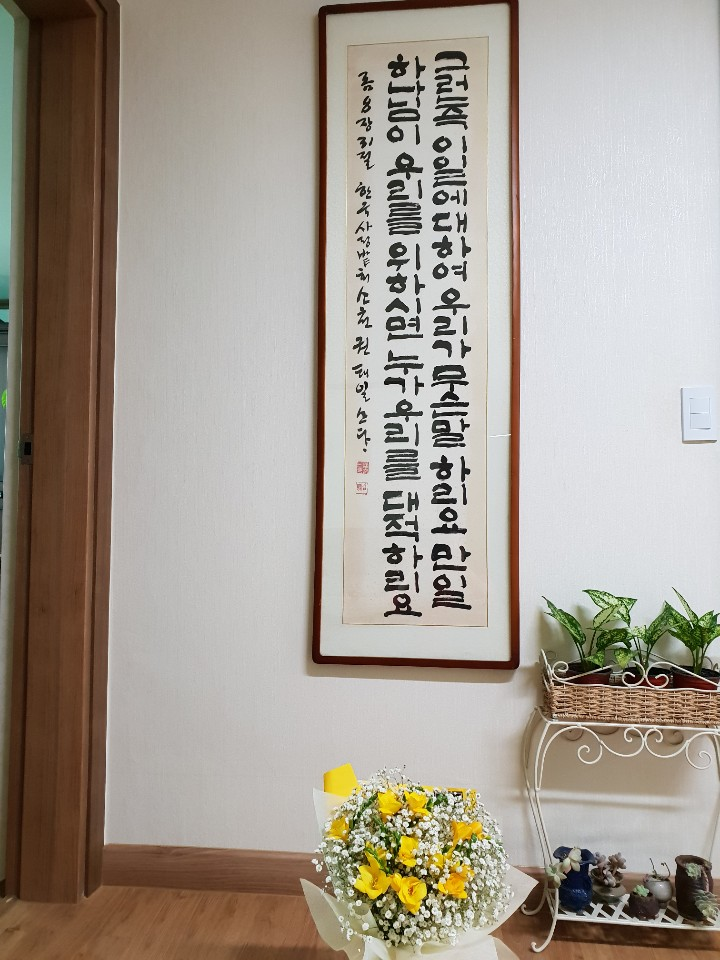 그런즉 이일에대하여 우리가 무슨말 하리요 만일
하나님이 우리를 위하시면 누가 우리를 대적하리요
롬 8장 31절 소천 권 태일 쓰다